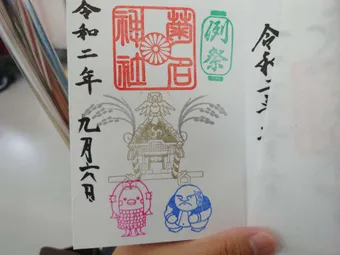 例祭
菊名
神社
令和二年 九月六日
令和二